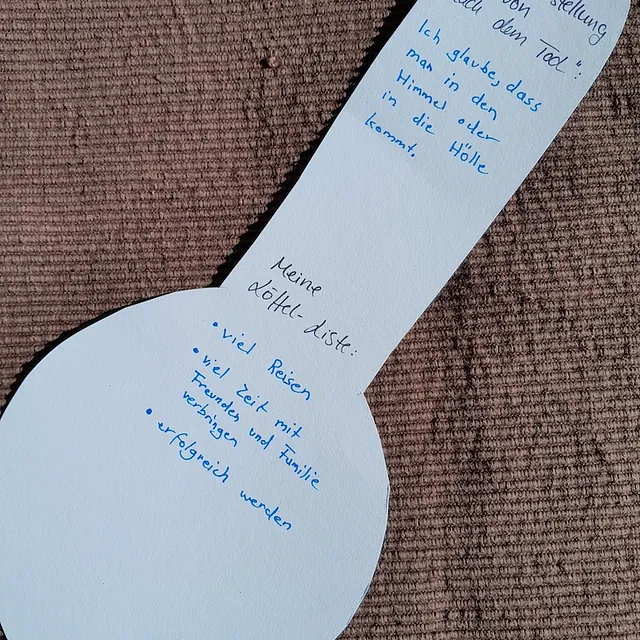 von stellung
dem Tod":
Ich glaube, dass
man in den
Himmel oder
in die Hölle
kommt.
Meine
Löffel-Liste:
• viel Reisen
• viel Zeit mit
Freunden und Familie
verbringen
• erfolgreich werden